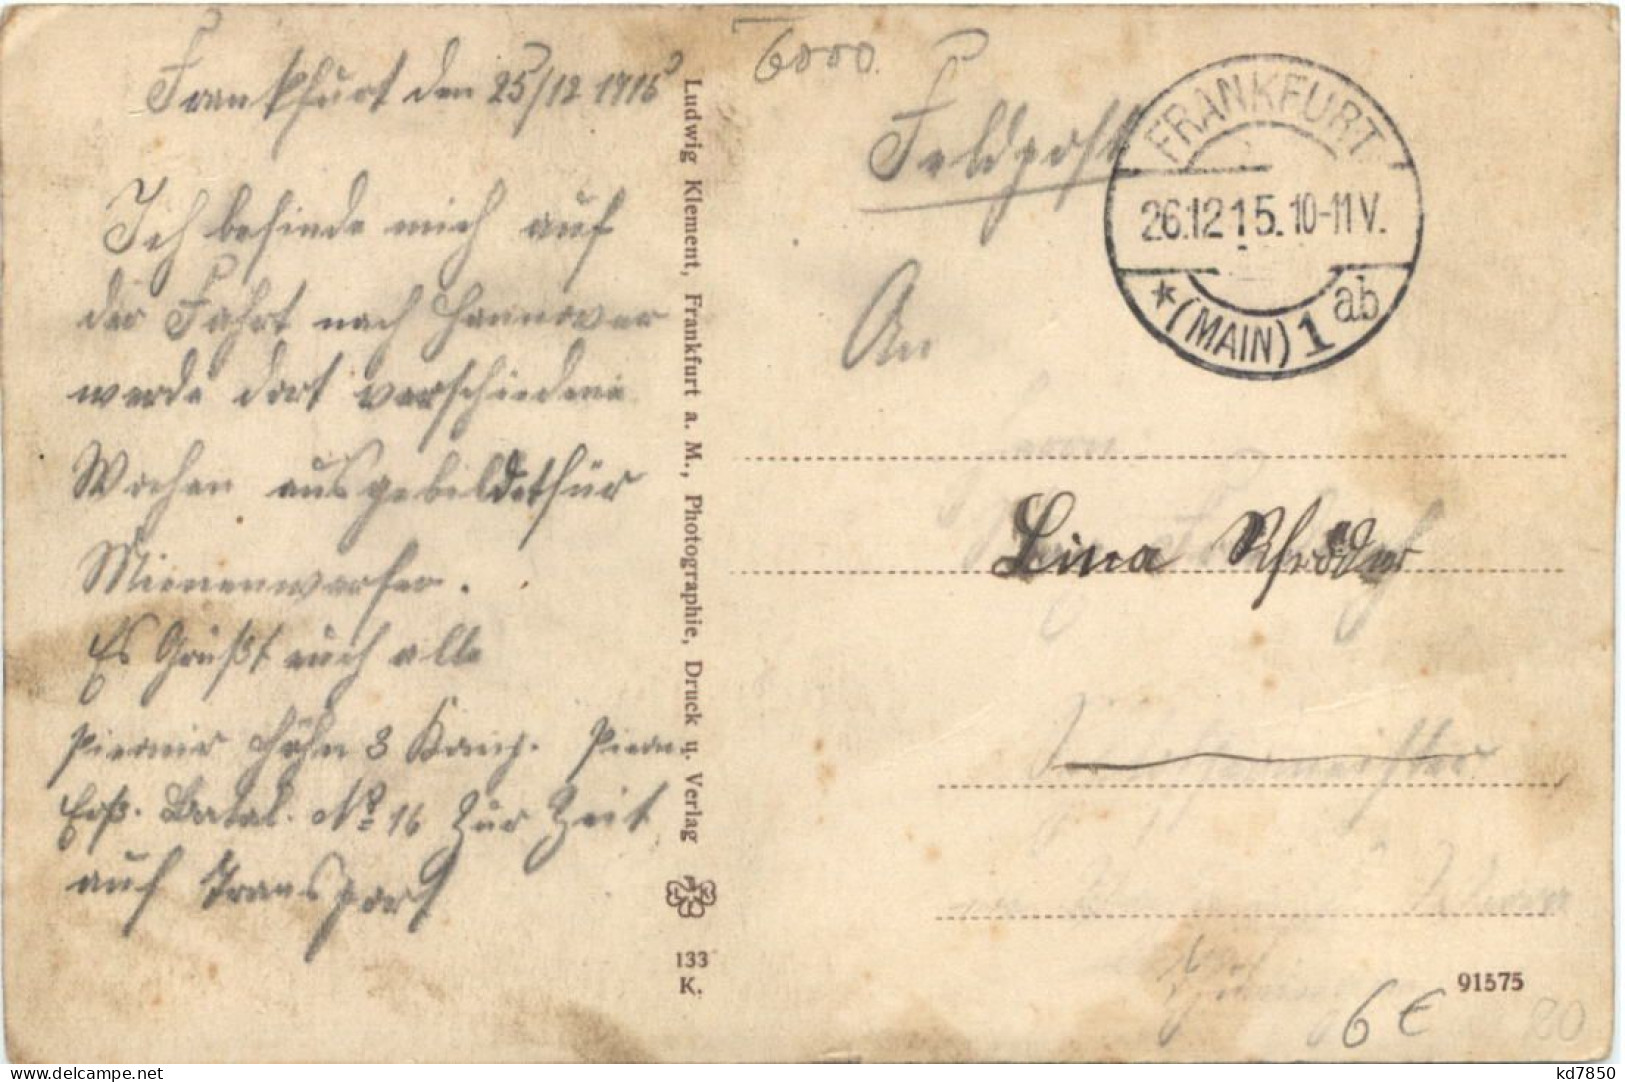 Frankfurt den 25/12 1915
Ich befinde mich auf
der Fahrt nach Hannover
werde dort verschiedene
Wochen ausgebildet für
Mienenwerfer.
Es Grüßt euch alle
Pionier Höhn 3 Komp. Pion.
Ers. Batal. No 16 Zur Zeit
auf Transport
Ludwig Klement, Frankfurt a. M., Photographie, Druck u. Verlag
133
K.
6000.
Feldpost
FRANKFURT
26.12.15.10-11V.
*(MAIN) 1 ab
An
Lina Schröder
91575
6€
80
kd7850